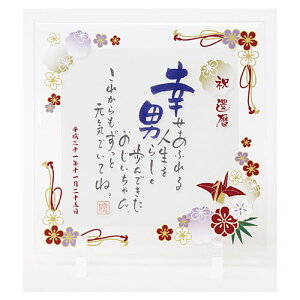 祝還暦
幸せあふれる
人生を
男らしく
歩んできた
おじいちゃん。
これからもずっと
元気でいてね。
平成三十一年十一月二十五日